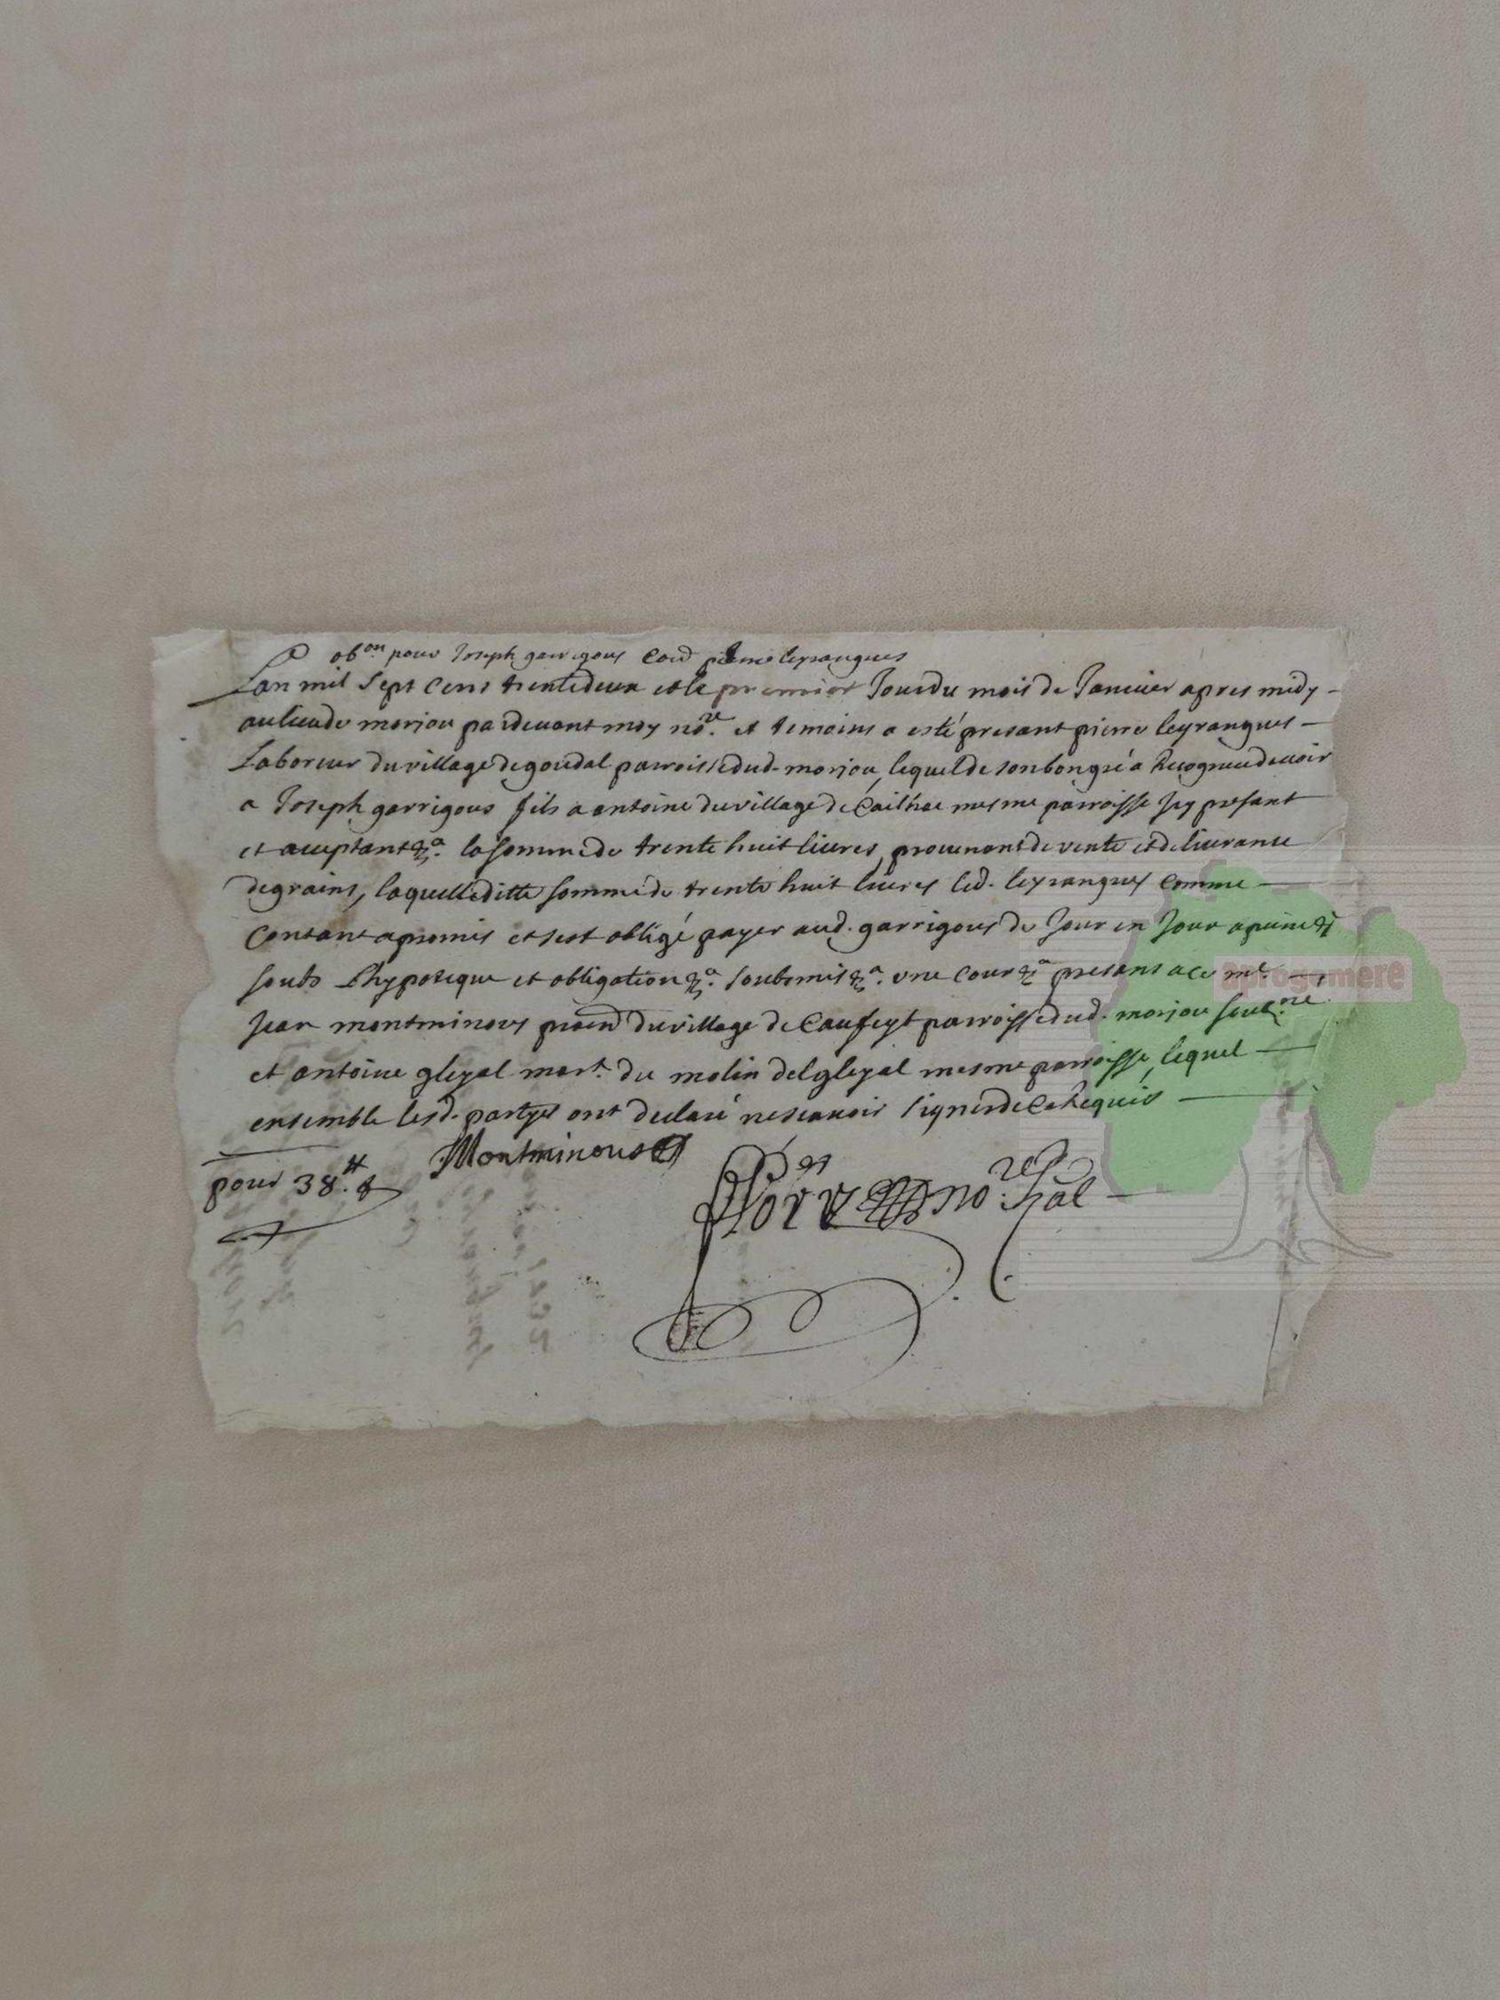 obon pour Joseph garrigous Cont pierre leyrangues
Lan mil Sept Cens trentedeux et le premier Jour du mois de Janvier apres midy
au lieu de morjou pardevant moy nore. et temoins a esté presant pierre leyrangues
Laboreur du village de goudal parroisse dud. morjou, lequel de son bon gré a Recogneu devoir
a Joseph garrigous fils a antoine du village de Cailhac mesme parroisse Icy presant
et acceptant &a. la somme de trente huit livres, provenant de vente et delivrance
de grains, laquelle ditte somme de trente huit livres led. leyrangues comme
Contant a promis et sest obligé payer aud. garrigous de Jour en Jour a peine &
soubs Lhypoteque et obligation &a. soubsmis &a. une Cour &a presans a ce me.
Jean montminous du village de Caufeyt parroisse dud. morjou soubne
et antoine gleyal mart. du molin del gleyal mesme parroisse, lequel
ensemble lesd. partyes ont declaré ne scavoir signer de Ce Requis
Montminous
pour 38.
nore
aprogemere